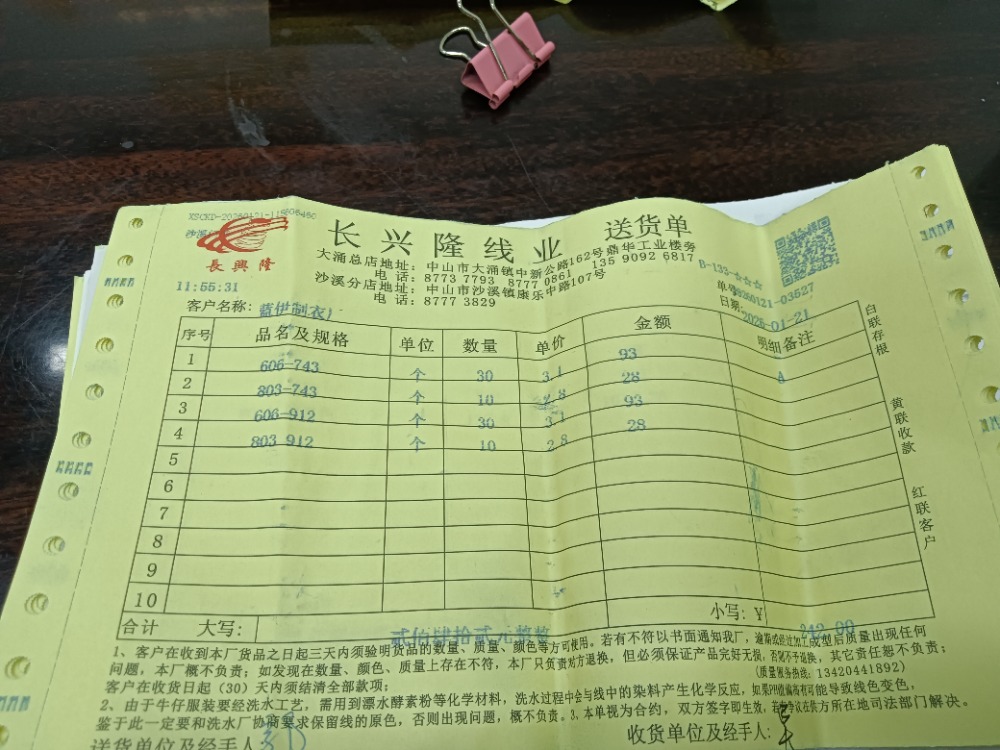 长兴隆线业 送货单
長興隆
大涌总店地址：中山市大涌镇中新公路162号鼎华工业楼旁
电话：8773 7793 8777 0861 135 9092 6817
沙溪分店地址：中山市沙溪镇康乐中路107号
电话：8777 3829
B-133-☆☆☆
11:55:31
日期:2026-01-21
客户名称：蓝伊制衣)
序号 品名及规格 单位 数量 单价 金额 明细备注
1 606-743 个 30 3.1 93
2 803-743 个 10 2.8 28
3 606-912 个 30 3.1 93
4 803 912 个 10 2.8 28
5
6
7
8
9
10
合计 大写： 贰佰肆拾贰元整 小写：¥ 242.00
白联存根
黄联收款
红联客户
1、客户在收到本厂货品之日起三天内须验明货品的数量、质量、颜色等方可使用。若有不符以书面通知我厂，逾期或经过加工成型后质量出现任何
问题，本厂概不负责；如发现在数量、颜色、质量上存在不符，本厂只负责对方退换，但必须保证产品完好无损，否恕不予退换，其它责任恕不负责；
（质量服务热线：13420441892）
客户在收货日起（30）天内须结清全部款项；
2、由于牛仔服装要经洗水工艺，需用到漂水酵素粉等化学材料，洗水过程中会与线中的染料产生化学反应，如果PH值偏高有可能导致线色变色，
鉴于此一定要和洗水厂协商要求保留线的原色，否则出现问题，概不负责。3、本单视为合约，双方签字即生效，若有争议在供方所在地司法部门解决。
送货单位及经手人 收货单位及经手人：